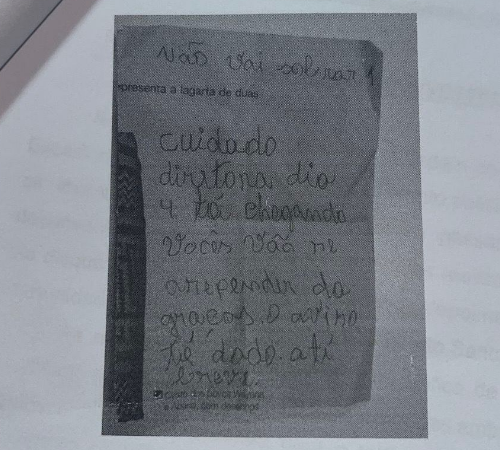 Não vai sobrar 1
presenta a lagarta de duas
cuidado
diretora dia
4 tá chegando
Vocês vão se
arepender da
graças. O aviso
já é dado. ati
breve.